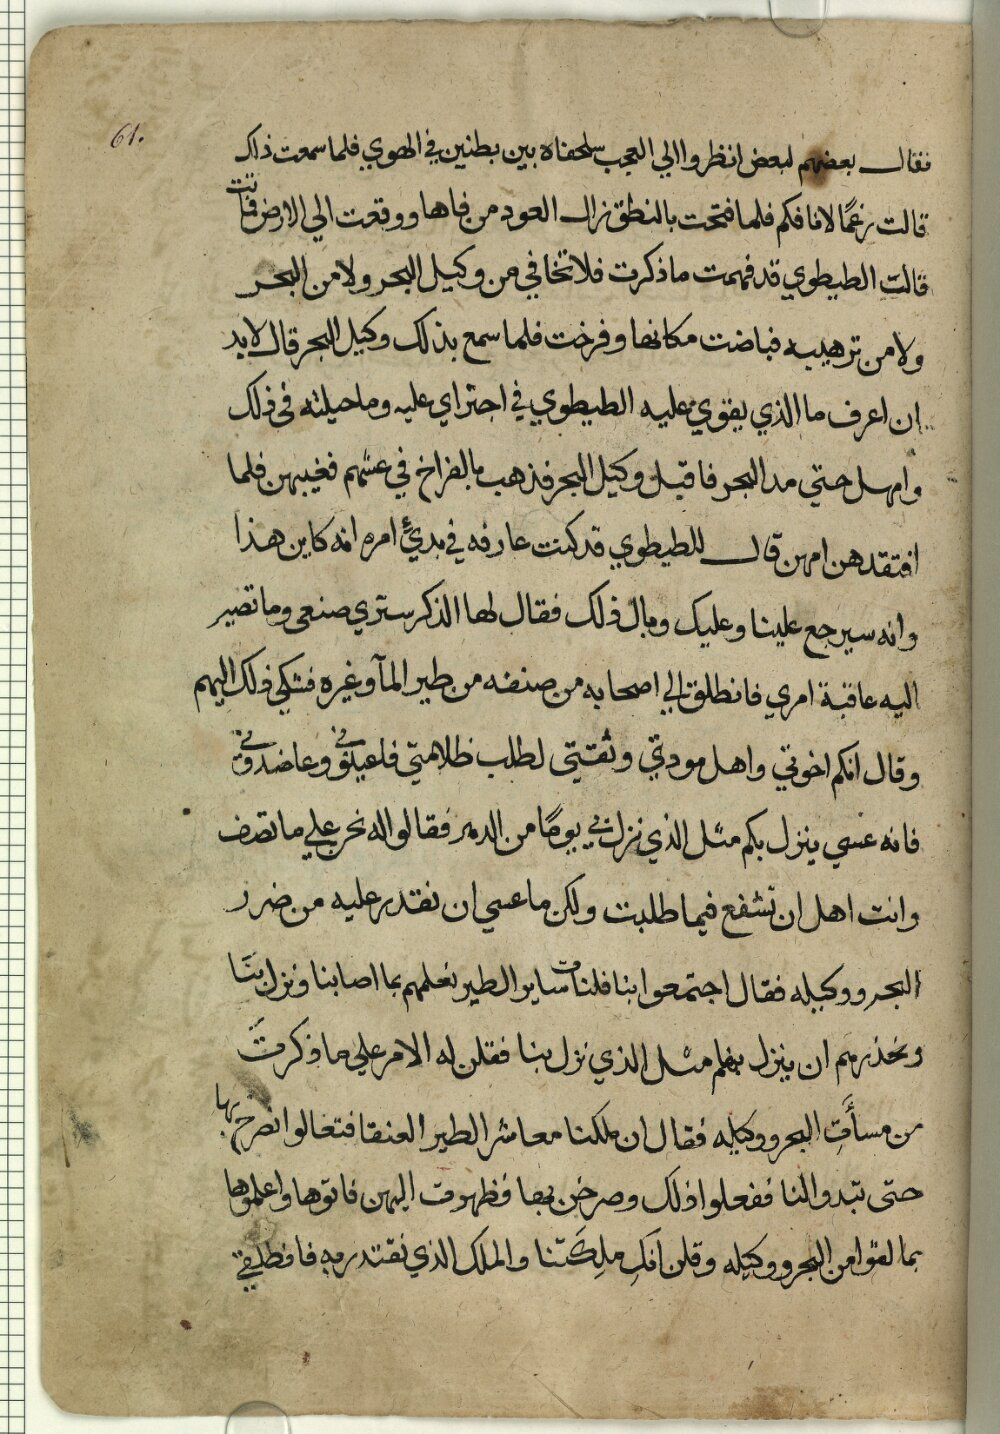 61.
فقال بعضهم لبعض انظروا الي العجب سلحفاه بين بطتين في الهوي فلما سمعت ذلك
قالت رغمًا لانافكم فلما فتحت بالنطق نزال العود من فاها ووقعت الي الارض فماتت
قالت الطيطوي قد فهمت ما ذكرت فلا تخافي من وكيل البحر ولا من البحر
ولا من ترهيبه فباضت مكانها وفرخت فلما سمع بذلك وكيل البحر قال لا بد
ان اعرف ما الذي يقوي عليه الطيطوي في احتراي عليه وما حيلته في ذلك
وامهل حتي مد البحر فاقبل وكيل البحر فذهب بالفراخ في عشهم فغيبهن فلما
افتقدهن امهن قال للطيطوي قد كنت عارفه في بديّ امره انه كاين هذا
وانه سيرجع علينا وعليك وبال ذلك فقال لها الذكر ستري صنعي وما تصير
اليه عاقبة امري فانطلق الي اصحابه من صنفه من طير المآ وغيره فشكي ذلك اليهم
وقال انكم اخوتي واهل مودتي وثقتي لطلب ظلامتي فاعينوني وعاضدوني
فانه عسي ينزل بكم مثل الذي نزل بي يومًا من الدهر فقالوا له نحن علي ما تصف
وانت اهل ان تشفع فيما طلبت ولكن ما عسي ان نقدر عليه من ضرر
البحر ووكيله فقال اجتمعوا بنا فلنات ساير الطير نعلمهم بما اصابنا ونزل بنا
ونحذرهم ان ينزل بهم مثل الذي نزل بنا فقلن له الامر علي ما ذكرت
من مسأت البحر ووكيله فقال ان ملكتنا معاشر الطير العنقا فتعالوا نصرخ بها
حتى تبدو النا ففعلوا ذلك وصرخن بها فظهرت اليهن فاتوها واعلموها
بما لقوا من البحر ووكيله وقلن انك ملكتنا والملك الذي نقتدر به فانطلقي